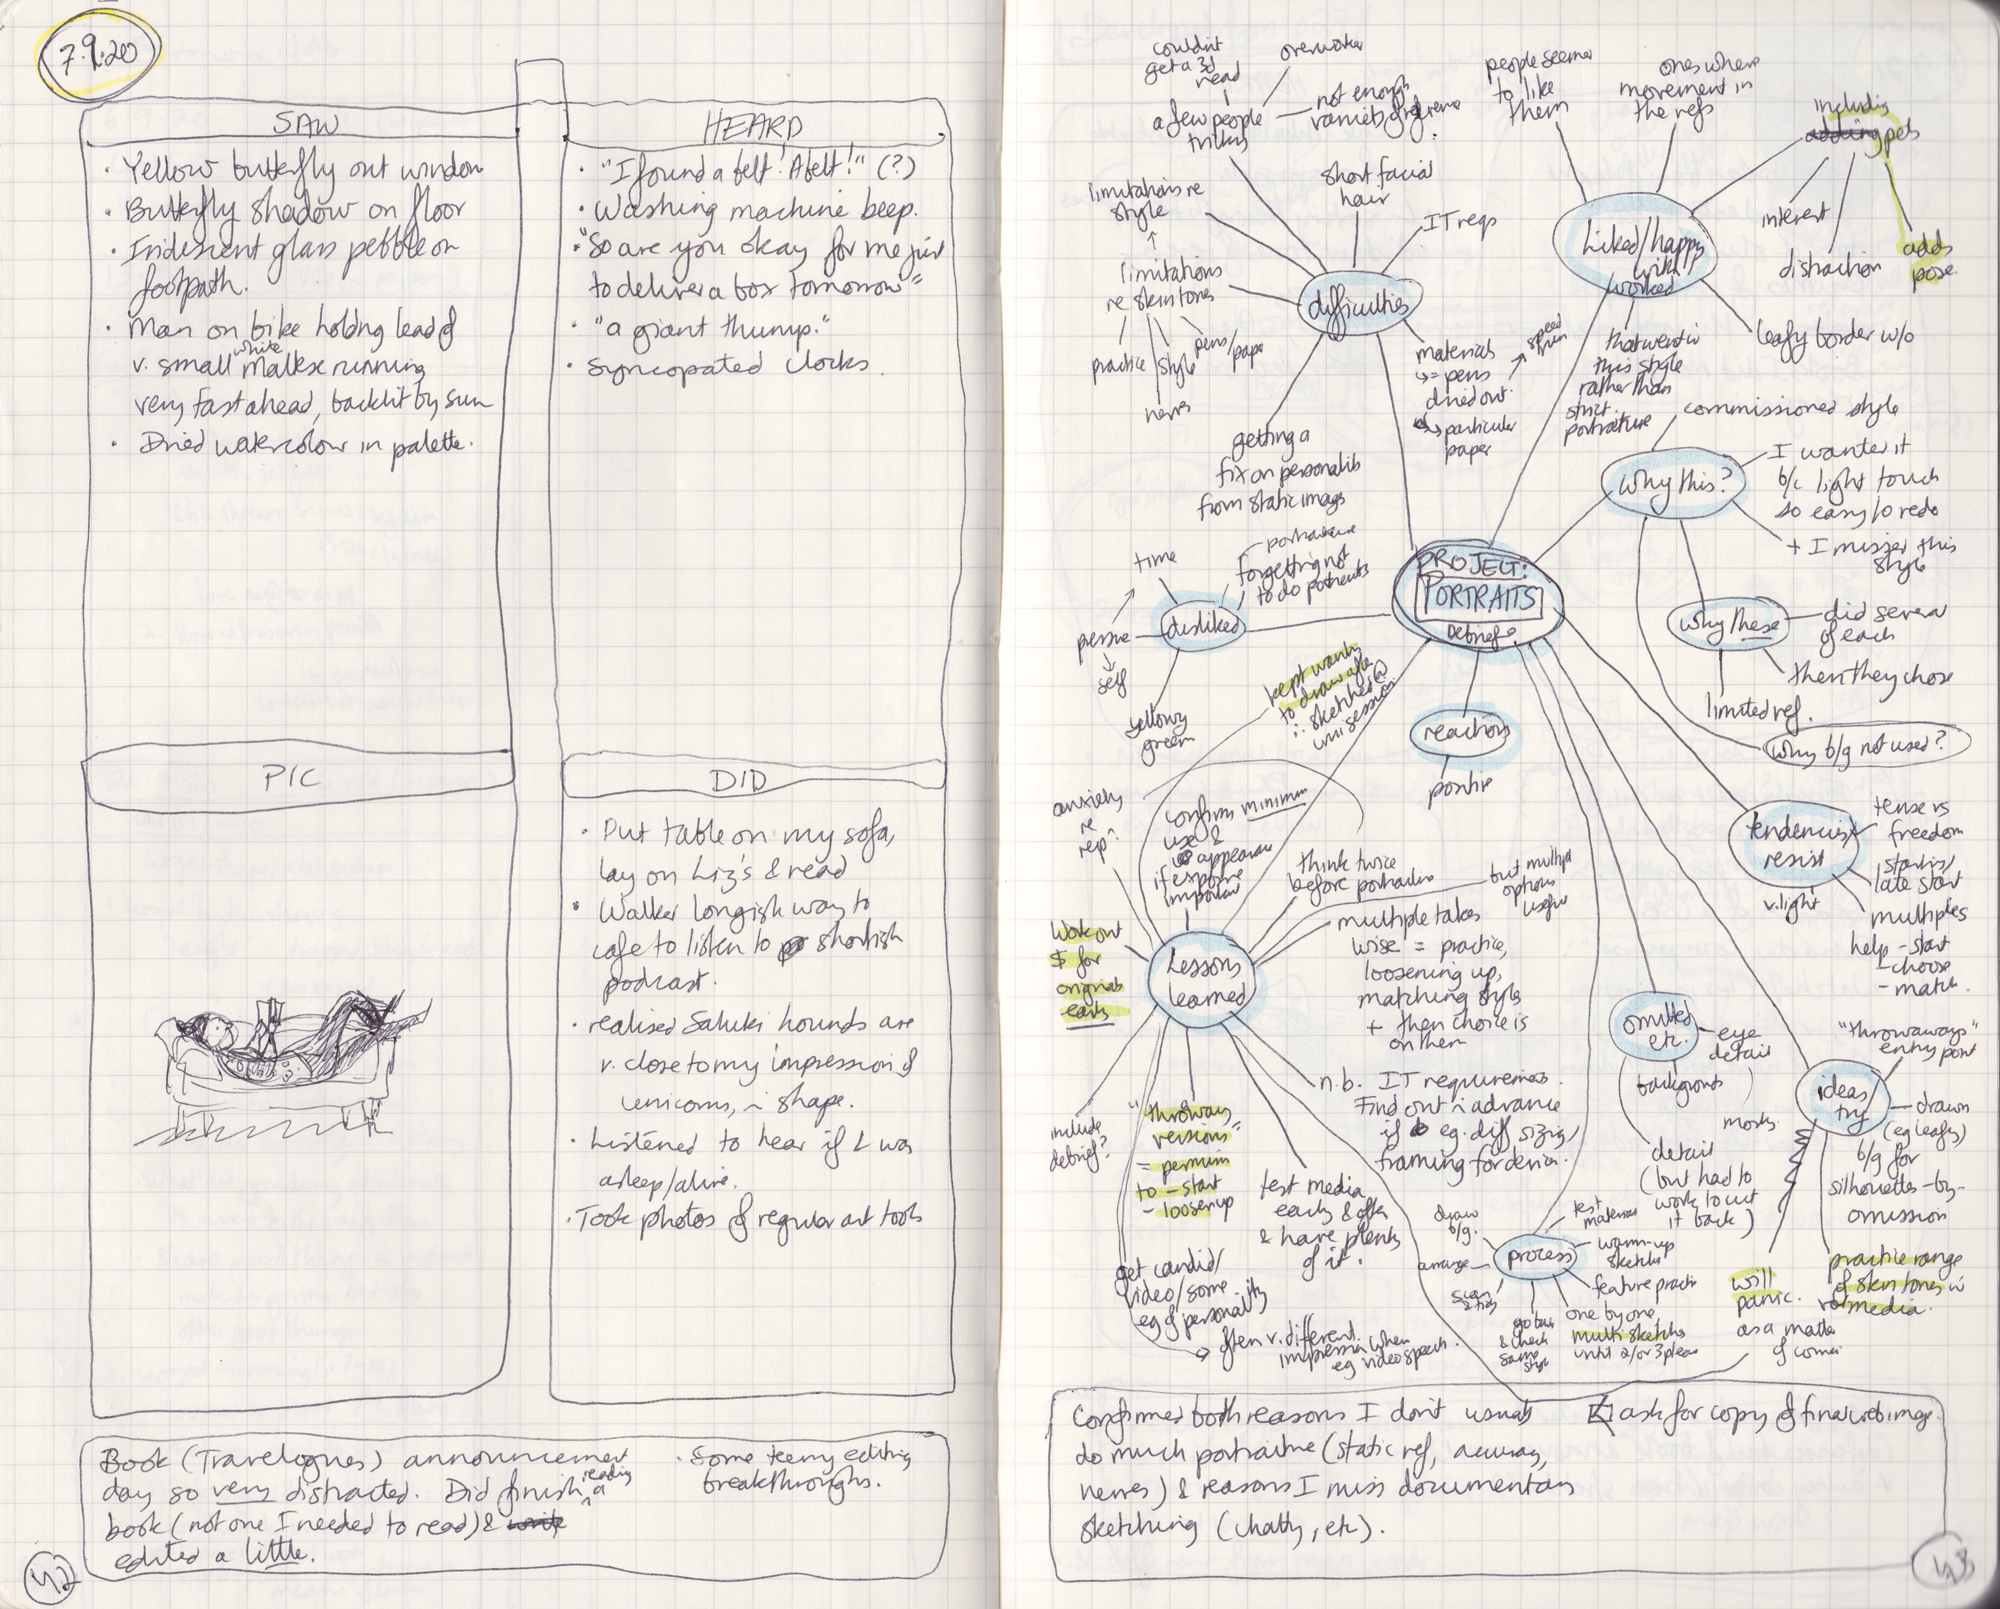 7.9.20
SAW
· Yellow butterfly out window
· Butterfly shadow on floor
· Iridescent glass pebble on
footpath.
· Man on bike holding lead of
v. small white Maltese running
very fast ahead, backlit by sun
· Dried watercolour in palette.
HEARD
· "I found a felt! A felt!" (?)
· Washing machine beep.
· "So are you okay for me just
to deliver a box tomorrow"
· "a giant thump."
· Syncopated clocks.
PIC
DID
· Put table on my sofa,
lay on Liz's & read
· Walked longish way to
cafe to listen to shortish
podcast.
· realised Saluki hounds are
v. close to my impression of
unicorns, in shape.
· Listened to hear if L was
asleep/alive.
· Took photos of regular art tools
Book (Travelogues) announcement
day so very distracted. Did finish reading a
book (not one I needed to read) & write
edited a little.
· Some teeny editing
breakthroughs.
42
PROJECT:
PORTRAITS
Debrief
difficulties
couldn't
get a 3d
read
overworked
a few people
tricky
not enough
variety of reference
limitations re
style
short facial
hair
IT reqs
limitations
re skin tones
practice
style
pens/paper
nerves
materials
↳ = pens
dried out.
↳ particular
paper
getting a
fix on personality
from static images
Liked/happy
with
worked
people seemed
to like
them
ones where
movement in
the refs
including
adding pets
interest
distraction
adds
pose.
leafy border w/o
that went in
this style
rather than
strict
portraiture
Why this?
commissioned style
I wanted it
b/c light touch
so easy to redo
+ I missed this
style
why these
did several
of each
then they chose
limited ref.
why b/g not used?
disliked
time
pressure
self
portraiture
forgetting not
to do portraits
yellowy
green
kept wanting
to draw after
∴ sketched @
uni session
reactions
positive
tendencies/
resist
tense vs
freedom
starting/
late start
v. light
multiples
help - start
- choose
- match.
omitted
etc.
eye
detail
backgrounds
detail
(but had to
work to cut
it back)
ideas/
try
"throwaways"
entry point
drawn
(eg leafy)
b/g for
silhouettes-by-
omission
practice range
of skin tones in
media.
will
panic.
as a matter
of course
Lessons
learned
anxiety
re
rep?
confirm minimum
use &
appearance
if response
important
think twice
before portraiture
but multiple
options
useful
multiple takes
wise = practice,
loosening up,
matching style
+ then choice is
on them
Work out
$ for
originals
early
include
debrief?
"throwaway
versions"
= permission
to - start
- loosen up
n.b. IT requirements.
Find out in advance
if eg. diff sizing/
framing for device.
test media
early & often
& have plenty
of it.
get candid/
video/some
eg of personality
often v. different
impression when
eg video speech.
process
test
materials
warm-up
sketches
feature practice
one by one,
multi sketches
until 2/or 3 please
go back
& check
same
style
arrange
draw
b/g.
Confirmed both reasons I don't usually
do much portraiture (static ref, accuracy,
nerves) & reasons I miss documentary
sketching (chatty, etc).
ask for copy of final web image.
43